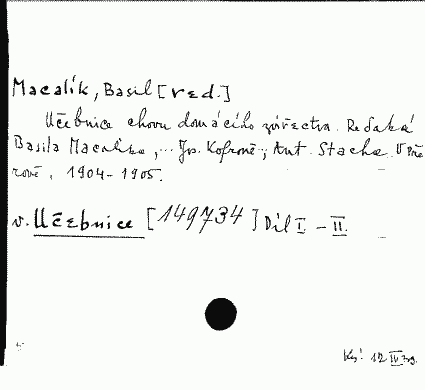 Macalík, Basil [red.]
Učebnice chovu domácího zvířectva. Redakcí
Basila Macalíka, ... Jos. Kofroně, Ant. Stacha. V Pře
rově, 1904-1905.
v. Učebnice [149734] Díl I - II.
12 IV 39.